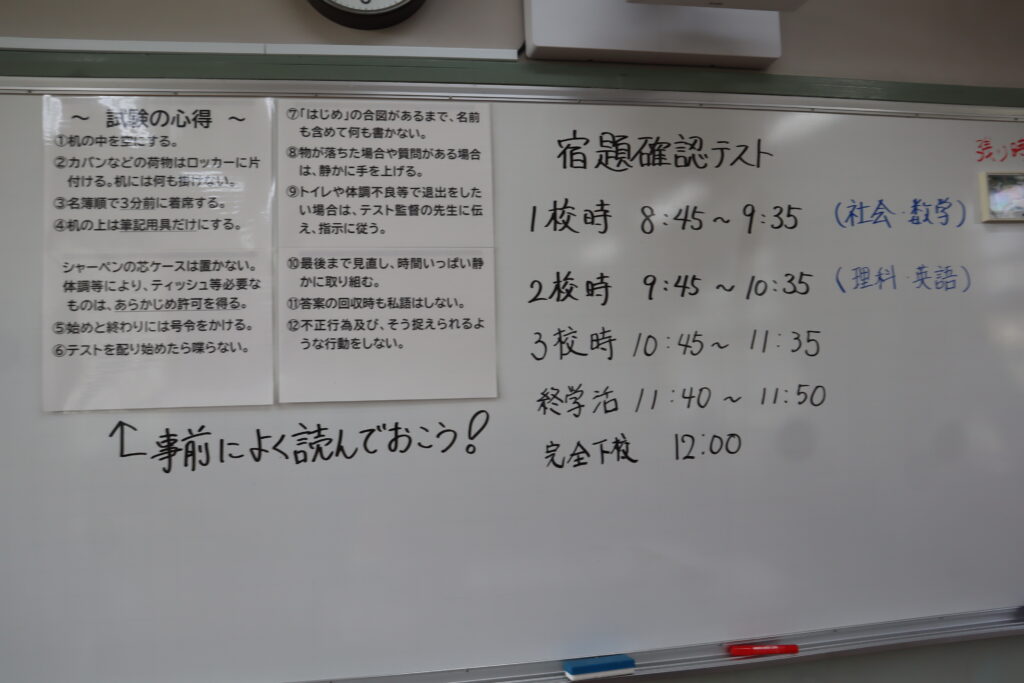 ～ 試験の心得 ～
①机の中を空にする。
②カバンなどの荷物はロッカーに片
付ける。机には何も掛けない。
③名簿順で3分前に着席する。
④机の上は筆記用具だけにする。
シャーペンの芯ケースは置かない。
体調等により、ティッシュ等必要な
ものは、あらかじめ許可を得る。
⑤始めと終わりには号令をかける。
⑥テストを配り始めたら喋らない。
⑦「はじめ」の合図があるまで、名前
も含めて何も書かない。
⑧物が落ちた場合や質問がある場合
は、静かに手を上げる。
⑨トイレや体調不良等で退出をした
い場合は、テスト監督の先生に伝
え、指示に従う。
⑩最後まで見直し、時間いっぱい静
かに取り組む。
⑪答案の回収時も私語はしない。
⑫不正行為及び、そう捉えられるよ
うな行動をしない。
↑事前によく読んでおこう！
宿題確認テスト
1校時 8:45～9:35 (社会・数学)
2校時 9:45～10:35 (理科・英語)
3校時 10:45～11:35
終学活 11:40～11:50
完全下校 12:00
張り